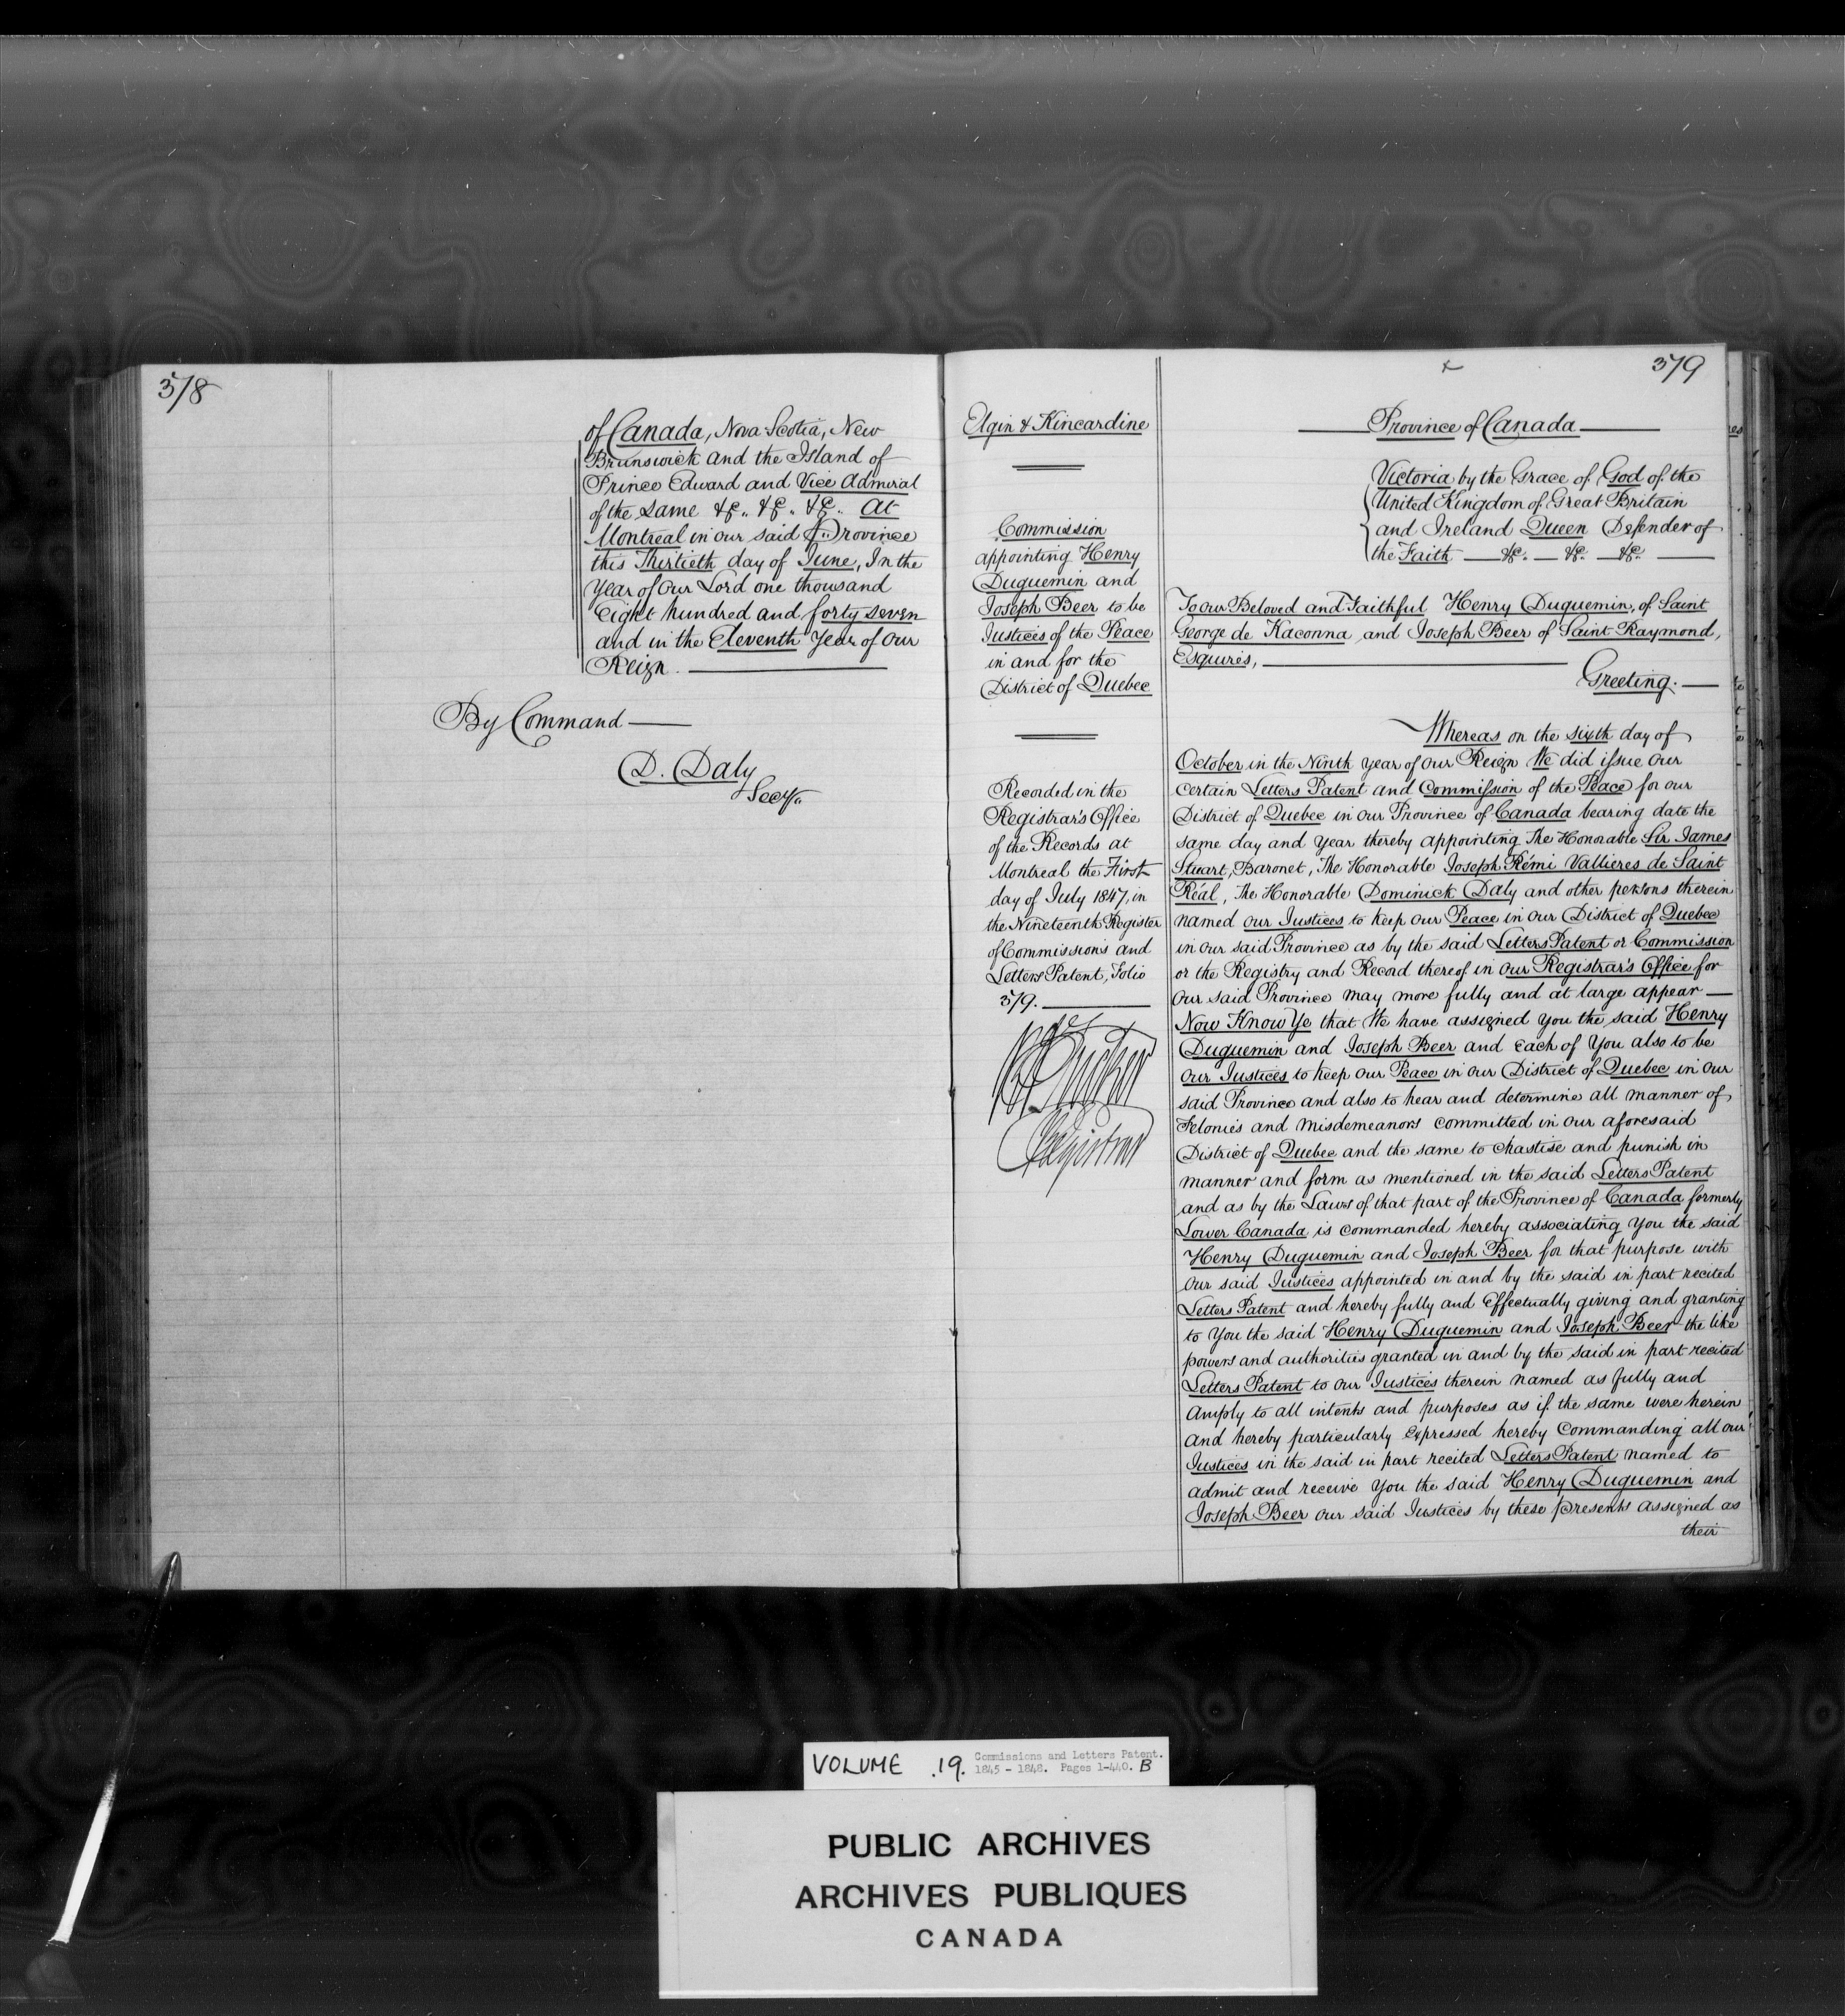 378
of Canada, Nova-Scotia, New
Brunswick and the Island of
Prince Edward and Vice Admiral
of the same &c., &c., &c., At
Montreal in our said Province
this Thirtieth day of June, In the
Year of Our Lord one thousand
Eight hundred and forty seven
and in the Eleventh Year of Our
Reign.
By Command
D. Daly
Secy.
Elgin & Kincardine
Commission
appointing Henry
Duquemin and
Joseph Beer to be
Justices of the Peace
in and for the
District of Quebec
Recorded in the
Registrar's Office
of the Records at
Montreal the First
day of July 1847, in
the Nineteenth Register
of Commissions and
Letters Patent, Folio
379.
Registrar
379
Province of Canada
Victoria by the Grace of God of the
United Kingdom of Great Britain
and Ireland Queen Defender of
the Faith &c. &c. &c.
To our Beloved and Faithful Henry Duquemin, of Saint
George de Kaconna, and Joseph Beer of Saint Raymond,
Esquires,
Greeting.
Whereas on the sixth day of
October in the Ninth Year of Our Reign We did issue Our
certain Letters Patent and Commission of the Peace for our
District of Quebec in our Province of Canada bearing date the
same day and Year thereby appointing The Honorable Sir James
Stuart, Baronet, The Honorable Joseph Rémi Vallieres de Saint
Réal, The Honorable Dominick Daly and other persons therein
named our Justices to keep our Peace in our District of Quebec
in our said Province as by the said Letters Patent or Commission
or the Registry and Record thereof in our Registrar's Office for
Our said Province may more fully and at large appear
Now Know Ye that We have assigned You the said Henry
Duquemin and Joseph Beer and each of You also to be
Our Justices to keep Our Peace in our District of Quebec in Our
said Province and also to hear and determine all manner of
Felonies and Misdemeanors committed in our aforesaid
District of Quebec and the same to Chastise and punish in
manner and form as mentioned in the said Letters Patent
and as by the Laws of that part of the Province of Canada formerly
Lower Canada is commanded hereby associating You the said
Henry Duquemin and Joseph Beer for that purpose with
Our said Justices appointed in and by the said in part recited
Letters Patent and hereby fully and Effectually giving and granting
to You the said Henry Duquemin and Joseph Beer the like
powers and authorities granted in and by the said in part recited
Letters Patent to our Justices therein named as fully and
Amply to all intents and purposes as if the same were herein
and hereby particularly Expressed hereby Commanding all our
Justices in the said in part recited Letters Patent named to
admit and receive You the said Henry Duquemin and
Joseph Beer our said Justices by these presents assigned as
their
VOLUME .19. Commissions and Letters Patent.
1845 - 1848. Pages 1-440. B
PUBLIC ARCHIVES
ARCHIVES PUBLIQUES
CANADA